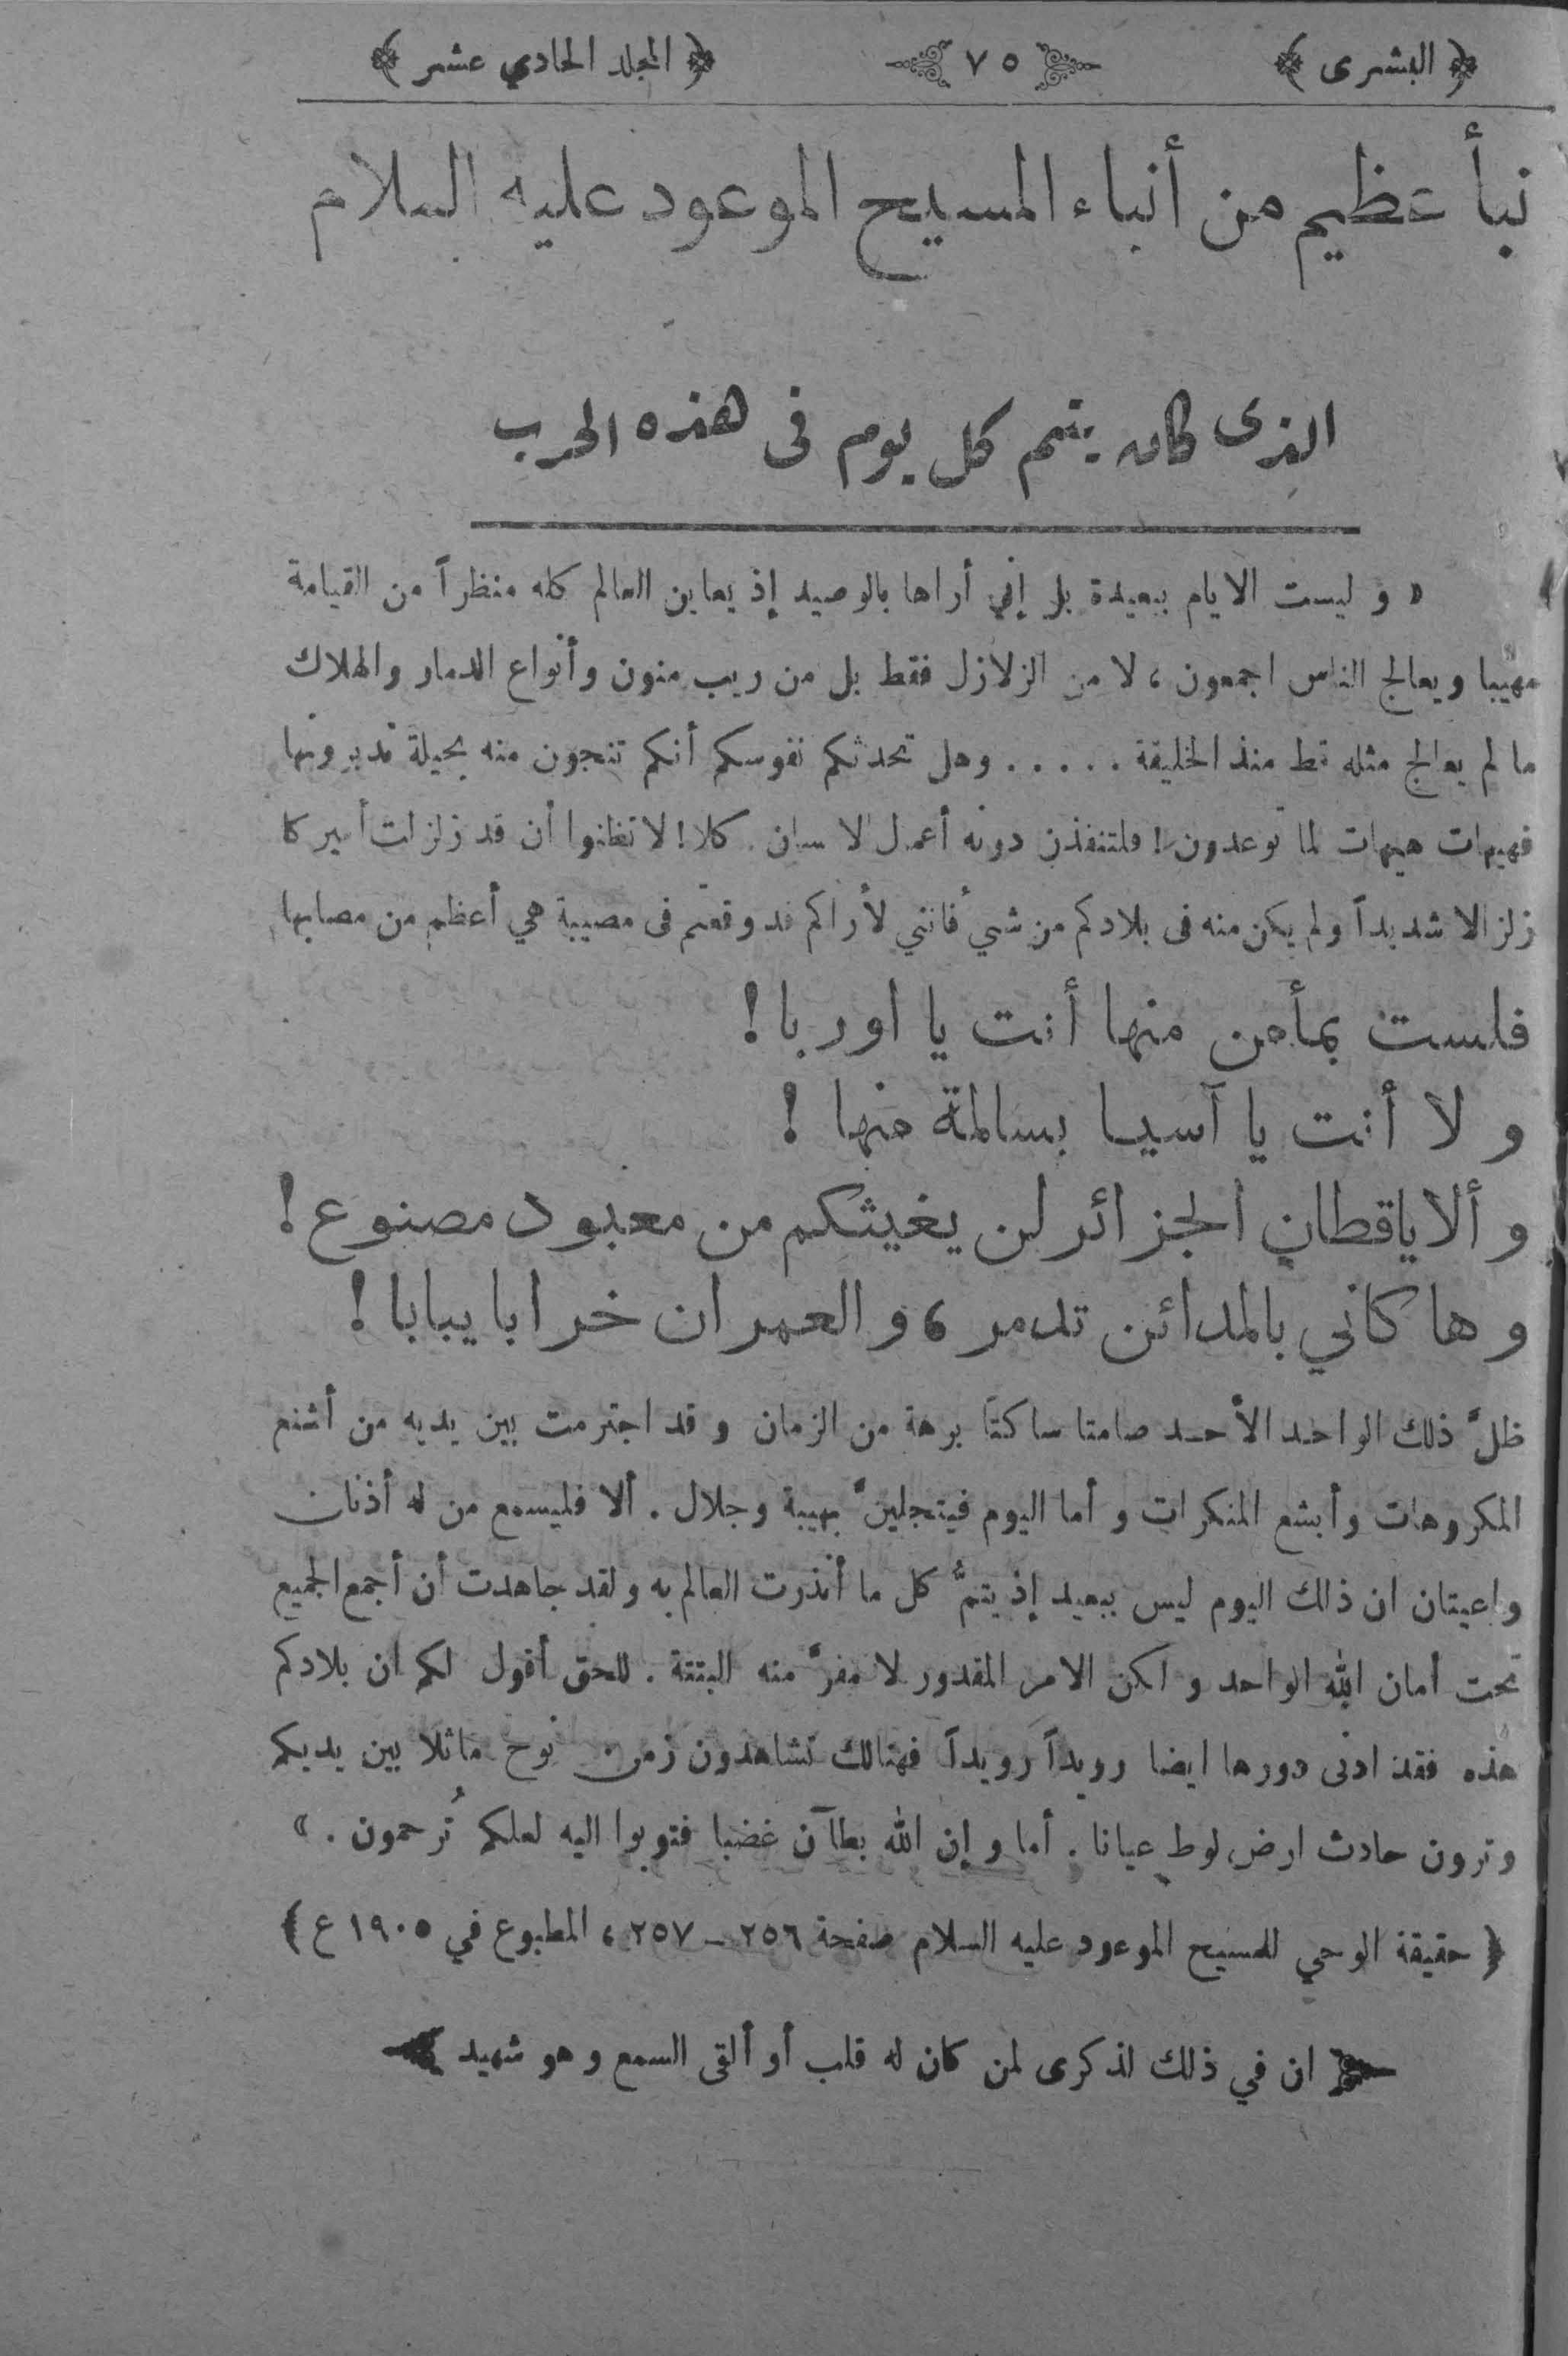 ﴿ البشرى ﴾ ٧٥ ﴿ المجلد الحادي عشر ﴾
نبأ عظيم من أنباء المسيح الموعود عليه السلام
الذى كان يتم كل يوم فى هذه الحرب
« و ليست الايام ببعيدة بل إني أراها بالوصيد إذ يعاين العالم كله منظراً من القيامة
مهيبا ويعالج الناس اجمعون ، لا من الزلازل فقط بل من ريب منون وأنواع الدمار والهلاك
ما لم يعالج مثله قط منذ الخليقة . . . . . وهل تحدثكم نفوسكم أنكم تنجون منه بحيلة تدبرونها
فهيهات هيهات لما توعدون ! فلتنفذن دونه أعمال الانسان . كلا ! لا تظنوا أن قد زلزلت أميركا
زلزالا شديداً ولم يكن منه فى بلادكم من شيء فانني لأراكم قد وقعتم فى مصيبة هي أعظم من مصابها
فلست بمأمن منها أنت يا اوربا !
و لا أنت يا آسيا بسالمة منها !
و ألا ياقطان الجزائر لن يغيثكم من معبود مصنوع !
و ها كاني بالمدائن تدمر ، و العمران خرابا يبابا !
ظلَّ ذلك الواحد الأحد صامتا ساكتا برهة من الزمان و قد اجترمت بين يديه من أشنع
المكروهات وأبشع المنكرات و أما اليوم فيتجلينَّ بهيبة وجلال . ألا فليسمع من له أذنان
واعيتان ان ذلك اليوم ليس ببعيد إذ يتمُّ كل ما أنذرت العالم به ولقد جاهدت أن أجمع الجميع
تحت أمان الله الواحد و لكن الامر المقدور لا مفرَّ منه البتتة . للحق أقول لكم ان بلادكم
هذه فقد ادنى دورها ايضا رويداً رويداً فهنالك تشاهدون زمن نوح ماثلا بين يديكم
وترون حادث ارض لوط عيانا . أما و إن الله بطآن غضبا فتوبوا اليه لعلكم تُرحمون . »
﴿ حقيقة الوحي للمسيح الموعود عليه السلام صفحة ٢٥٦ ـ ٢٥٧ ، المطبوع في ١٩٠٥ ع ﴾
ان في ذلك لذكرى لمن كان له قلب أو ألقى السمع و هو شهيد